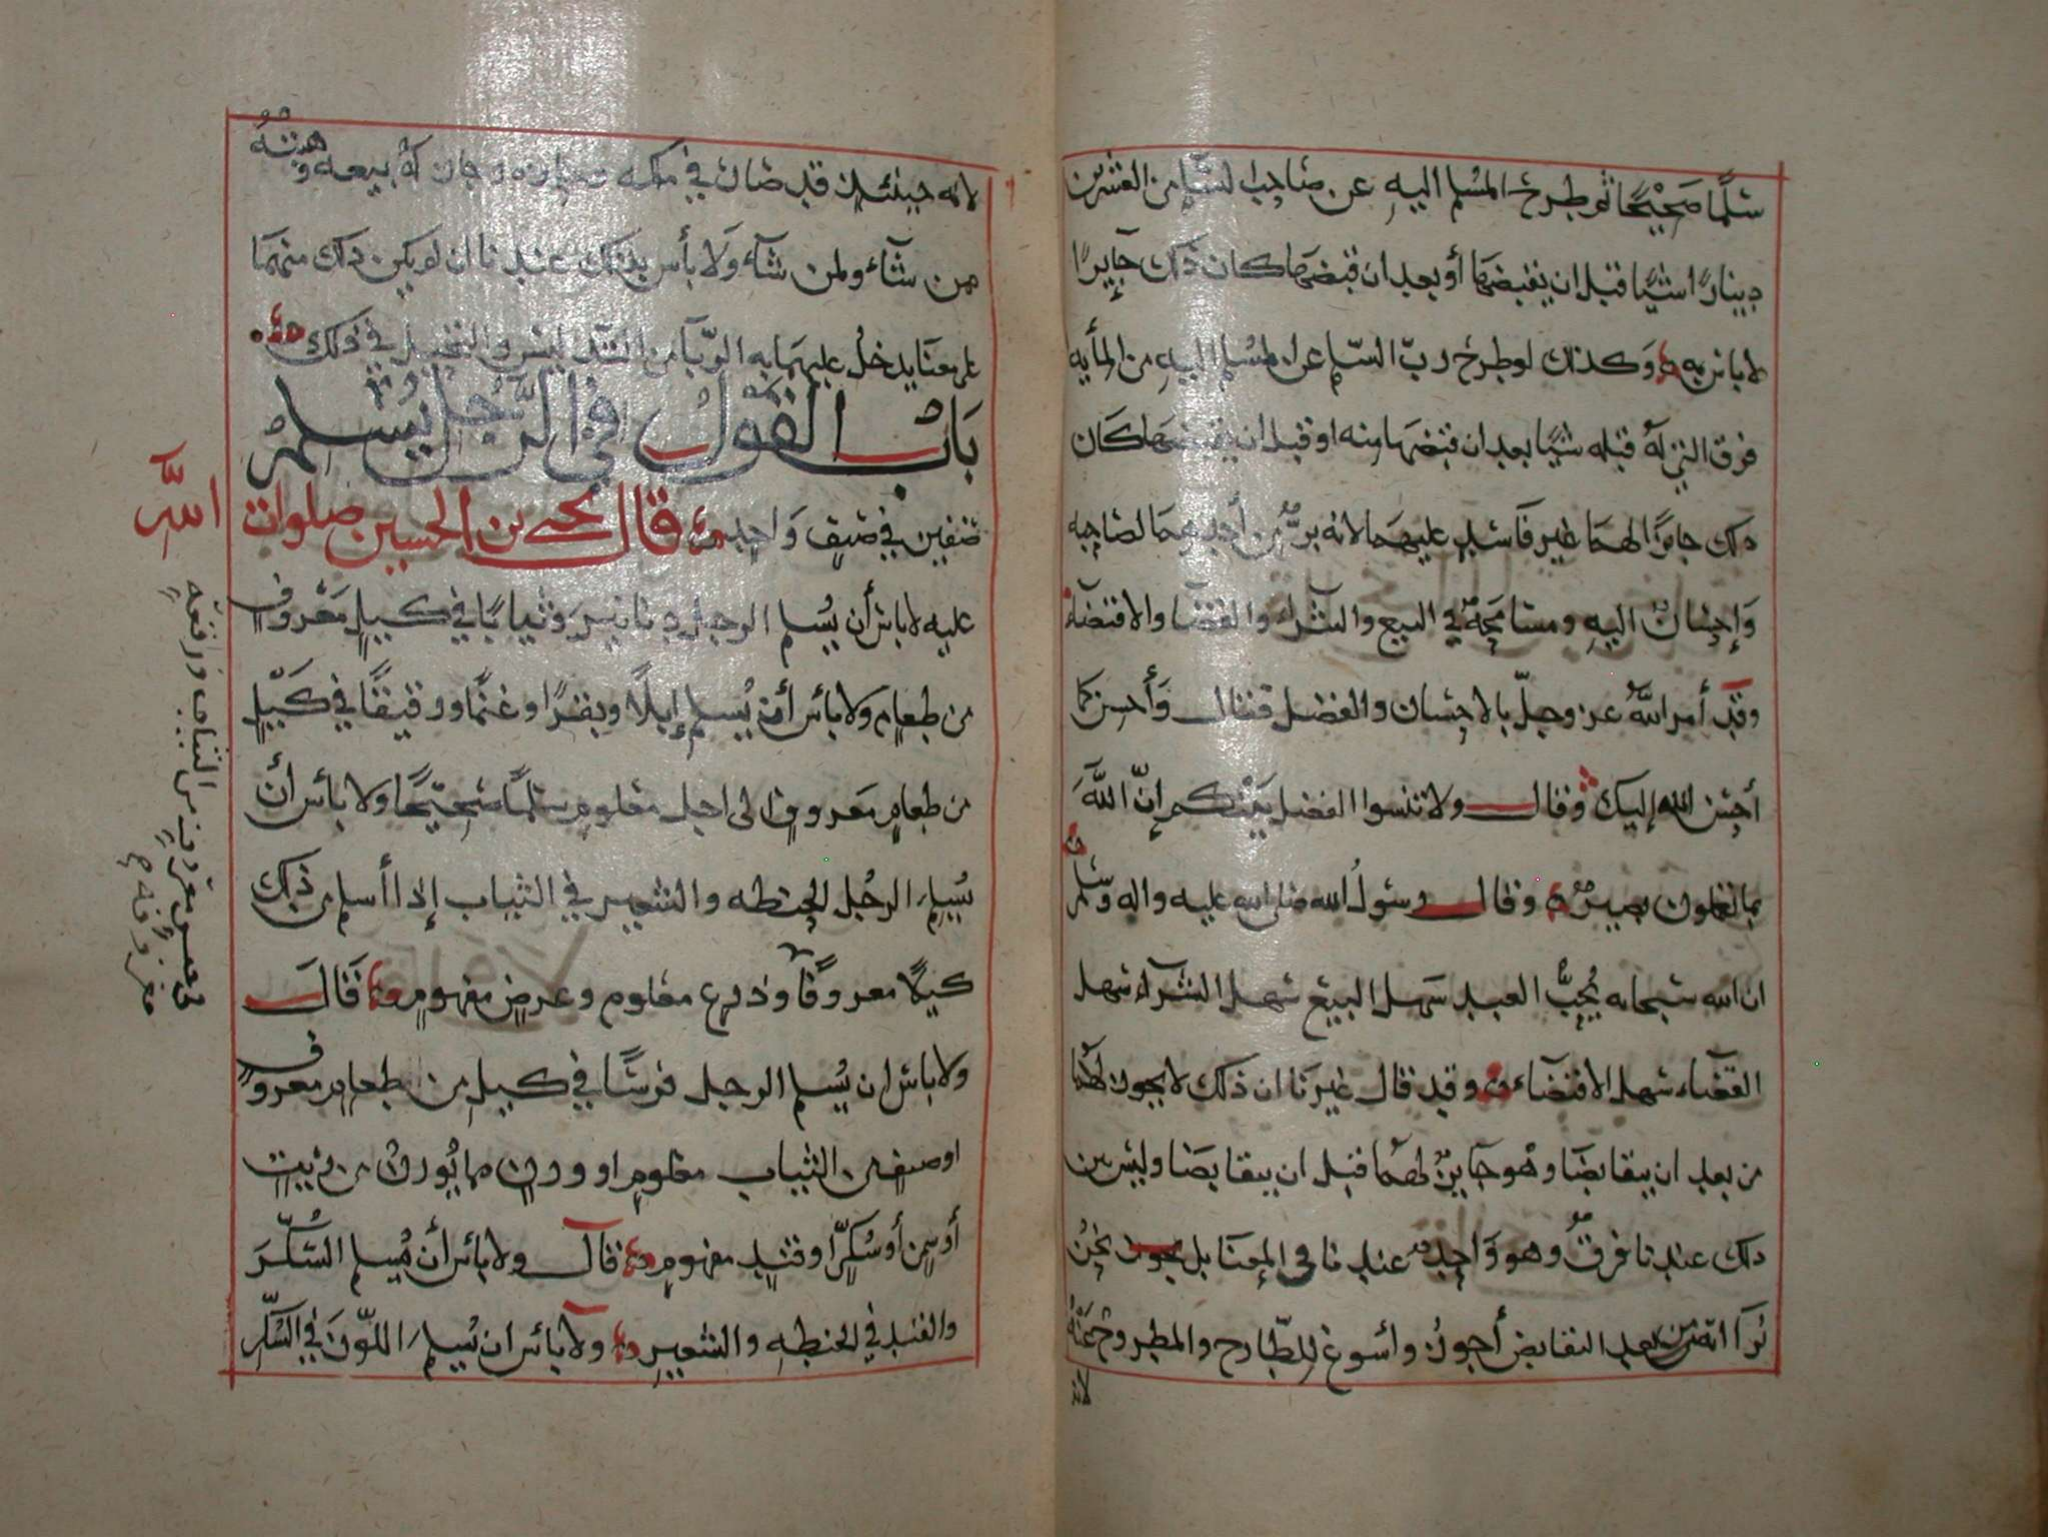 سلمًا صحيحًا ثم طرح المسلم اليه عن صاحب السلم من العشرين
دينارًا شيًا قبل ان يقبضها أو بعد ان قبضها كان ذلك جايزًا
لا باس به وكذلك لو طرح رب السلم عن المسلم اليه من المأيه
فرق التي له قبله شيًا بعد ان قبضها منه او قبل ان يقبضها كان
ذلك جايزًا لهما غير فاسد عليهما لانه برٌّ من أحدهما لصاحبه
وإحسانٌ اليه ومسامحة في البيع والشراء والقضا والاقتضاء
وقد أمر الله عز وجل بالاحسان والفضل فقال وأحسن كما
أحسن الله إليك وقال ولا تنسوا الفضل بينكم إنّ اللهَ
بما تعملون بصير وقال رسول الله صلى الله عليه واله وسلم
ان الله سبحانه يُحِبُّ العبد سهل البيع سهل الشراء سهل
القضاء سهل الاقتضاء وقد قال غيرنا ان ذلك لا يجوز لهما
من بعد ان يتقابضا وهو جايزٌ لهما قبل ان يتقابضا وليس بين
ذلك عندنا فرقٌ وهو واحدٌ عندنا في المعنا بل يجوز نحن
نرا انه من بعد التقابض أجوز وأسوغ للطارح والمطروح عنه
لانه
لانه حينئذٍ قد صار في ملكه وجاز له بيعه وهبته
ممن شاء ولمن شاء ولا بأس بذلك عندنا ان لم يكن ذلك منهما
على معنا يدخل عليهما به الربا من التدليس والتحيل في ذلك
باب القول في الرجل يسلم
صنفين في صنف واحد قال يحيى بن الحسين صلوات الله
عليه لا باس أن يُسلم الرجل دنانير وثيابًا في كيلٍ معروفٍ
من طعامٍ ولا بائس أن يُسلم إبلًا وبقرًا وغنمًا ورقيقًا في كيلٍ
من طعامٍ معروفٍ الى اجل معلومٍ سلمًا صحيحًا ولا بائس أن
يسلم الرجل الحنطه والشعير في الثياب إذا أسلم من ذلك
كيلًا معروفًا وذرع معلوم وعرضٍ مفهومٍ قال
ولا باس ان يُسلم الرجل فرسًا في كيلٍ من طعامٍ معروفٍ
اوصنف من الثياب معلومٍ او وزنٍ مما يُوزن من زيتٍ
أو سمن أو سُكّرٍ او قندٍ مفهومٍ قال ولا بائس أن يُسلم السُّكّرَ
والقند في الحنطه والشعير ولا بائس ان يُسلم اللوّز في السُّكّر
في جنس معروف من الثياب ورقعةٍ